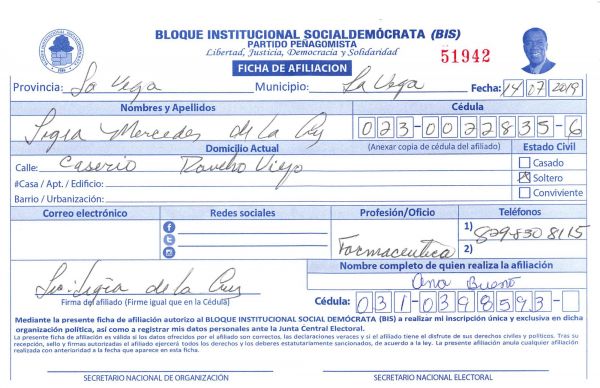 BLOQUE INSTITUCIONAL SOCIALDEMÓCRATA (BIS)
PARTIDO PEÑAGOMISTA
Libertad, Justicia, Democracia y Solidaridad
51942
FICHA DE AFILIACION
Provincia: La Vega Municipio: La Vega Fecha: 14/07/2019
Nombres y Apellidos Cédula
Ligia Mercedes de la Cruz 023-0022835-6
Domicilio Actual (Anexar copia de cédula del afiliado) Estado Civil
Calle: Caserio Rancho Viejo Casado
#Casa / Apt. / Edificio: Soltero
Barrio / Urbanización: Conviviente
Correo electrónico Redes sociales Profesión/Oficio Teléfonos
1) 829-830 8115
Farmaceutica 2)
Nombre completo de quien realiza la afiliación
Lic. Ligia de la Cruz Ana Bueno
Firma del afiliado (Firme igual que en la Cédula) Cédula: 031-0398593-
Mediante la presente ficha de afiliación autorizo al BLOQUE INSTITUCIONAL SOCIAL DEMÓCRATA (BIS) a realizar mi inscripción única y exclusiva en dicha
organización política, así como a registrar mis datos personales ante la Junta Central Electoral.
La presente ficha de afiliación en válida si los datos ofrecidos por el afiliado son correctos, las declaraciones veraces y si el afiliado tiene el disfrute de sus derechos civiles y políticos. Tras su
recepción, sello y firmas autorizadas el afiliado ejercerá todos los derechos y los deberes estatutariamente sancionados, de acuerdo a la ley. La presente afiliación anula cualquier afiliación
realizada con anterioridad a la fecha que aparece en esta ficha.
SECRETARIO NACIONAL DE ORGANIZACIÓN SECRETARIO NACIONAL ELECTORAL